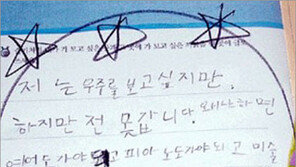 가 보고 싶은
저는 우주를 보고싶지만,
하지만 전 못갑니다. 왜냐하면
영어도 가야되고 피아노도가야되고 미술